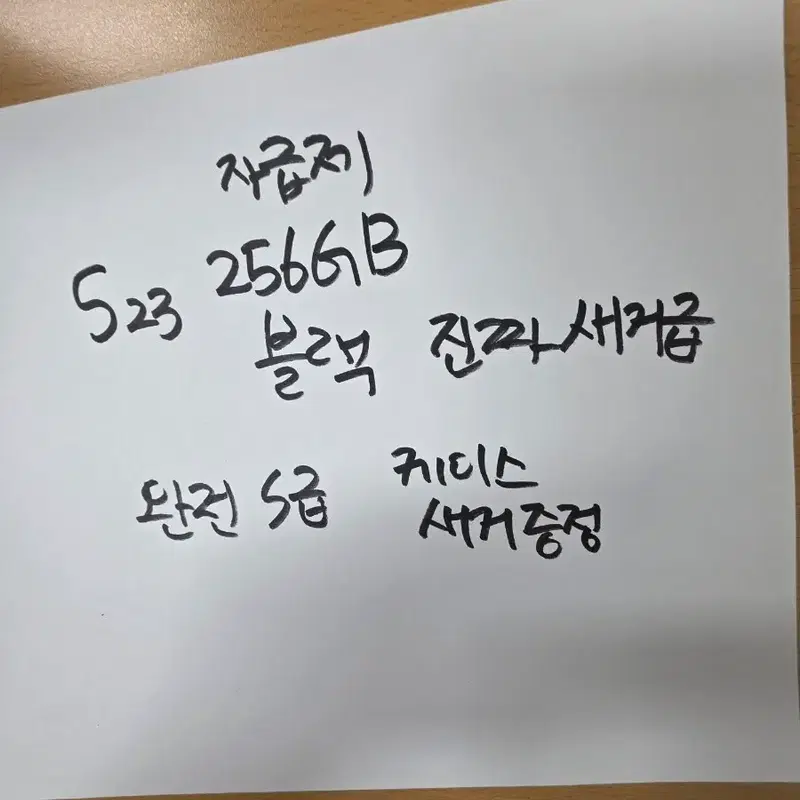 자급제
S23 256GB
블랙 진짜 새거급
완전 S급 케이스
새거증정